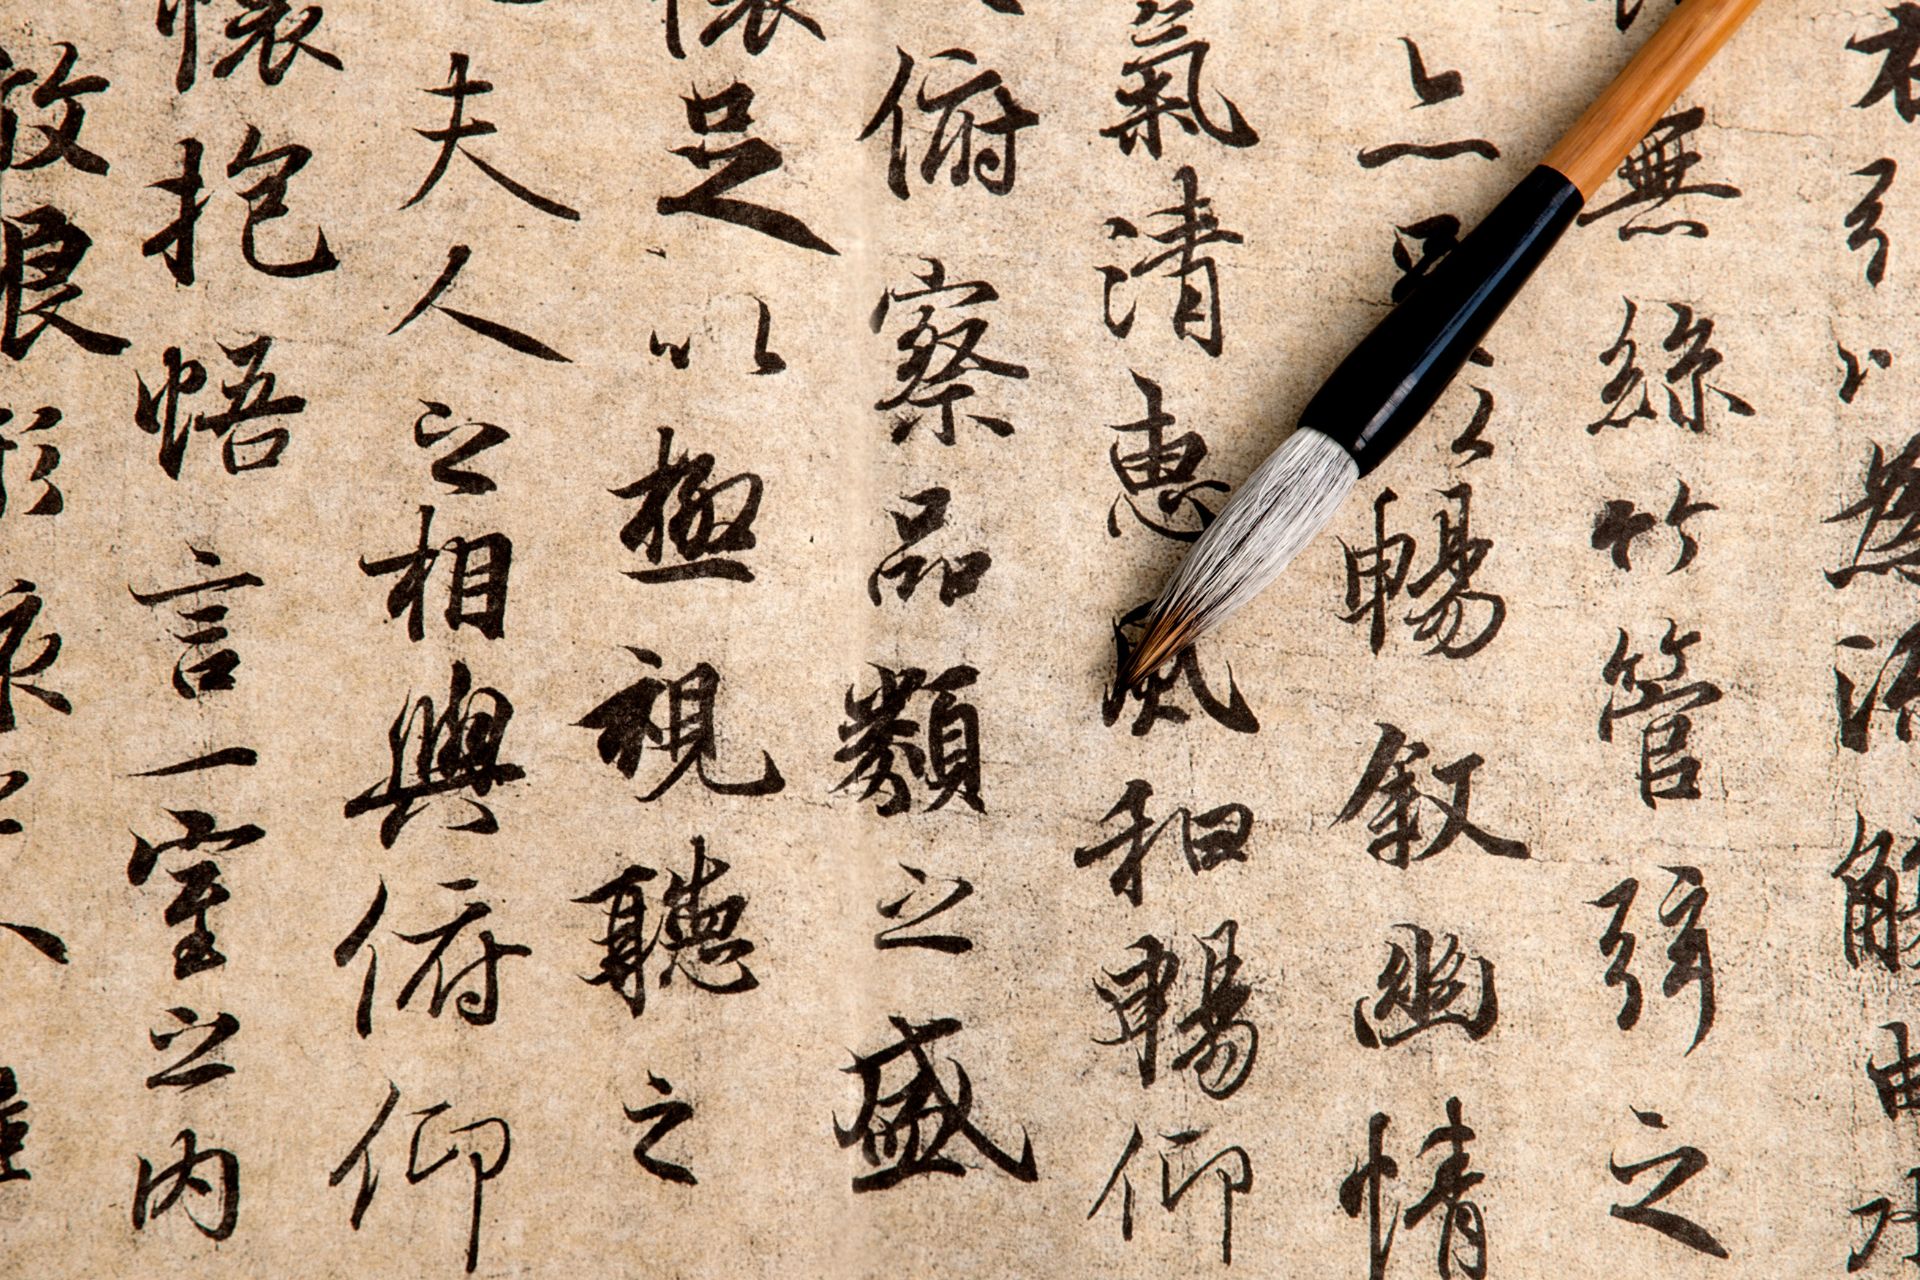 引以為流觴曲水
無絲竹管弦之
亦足以暢敘幽情
氣清惠風和暢仰
俯察品類之盛
懷足以極視聽之
夫人之相與俯仰
懷抱悟言一室之内
放浪形骸之外